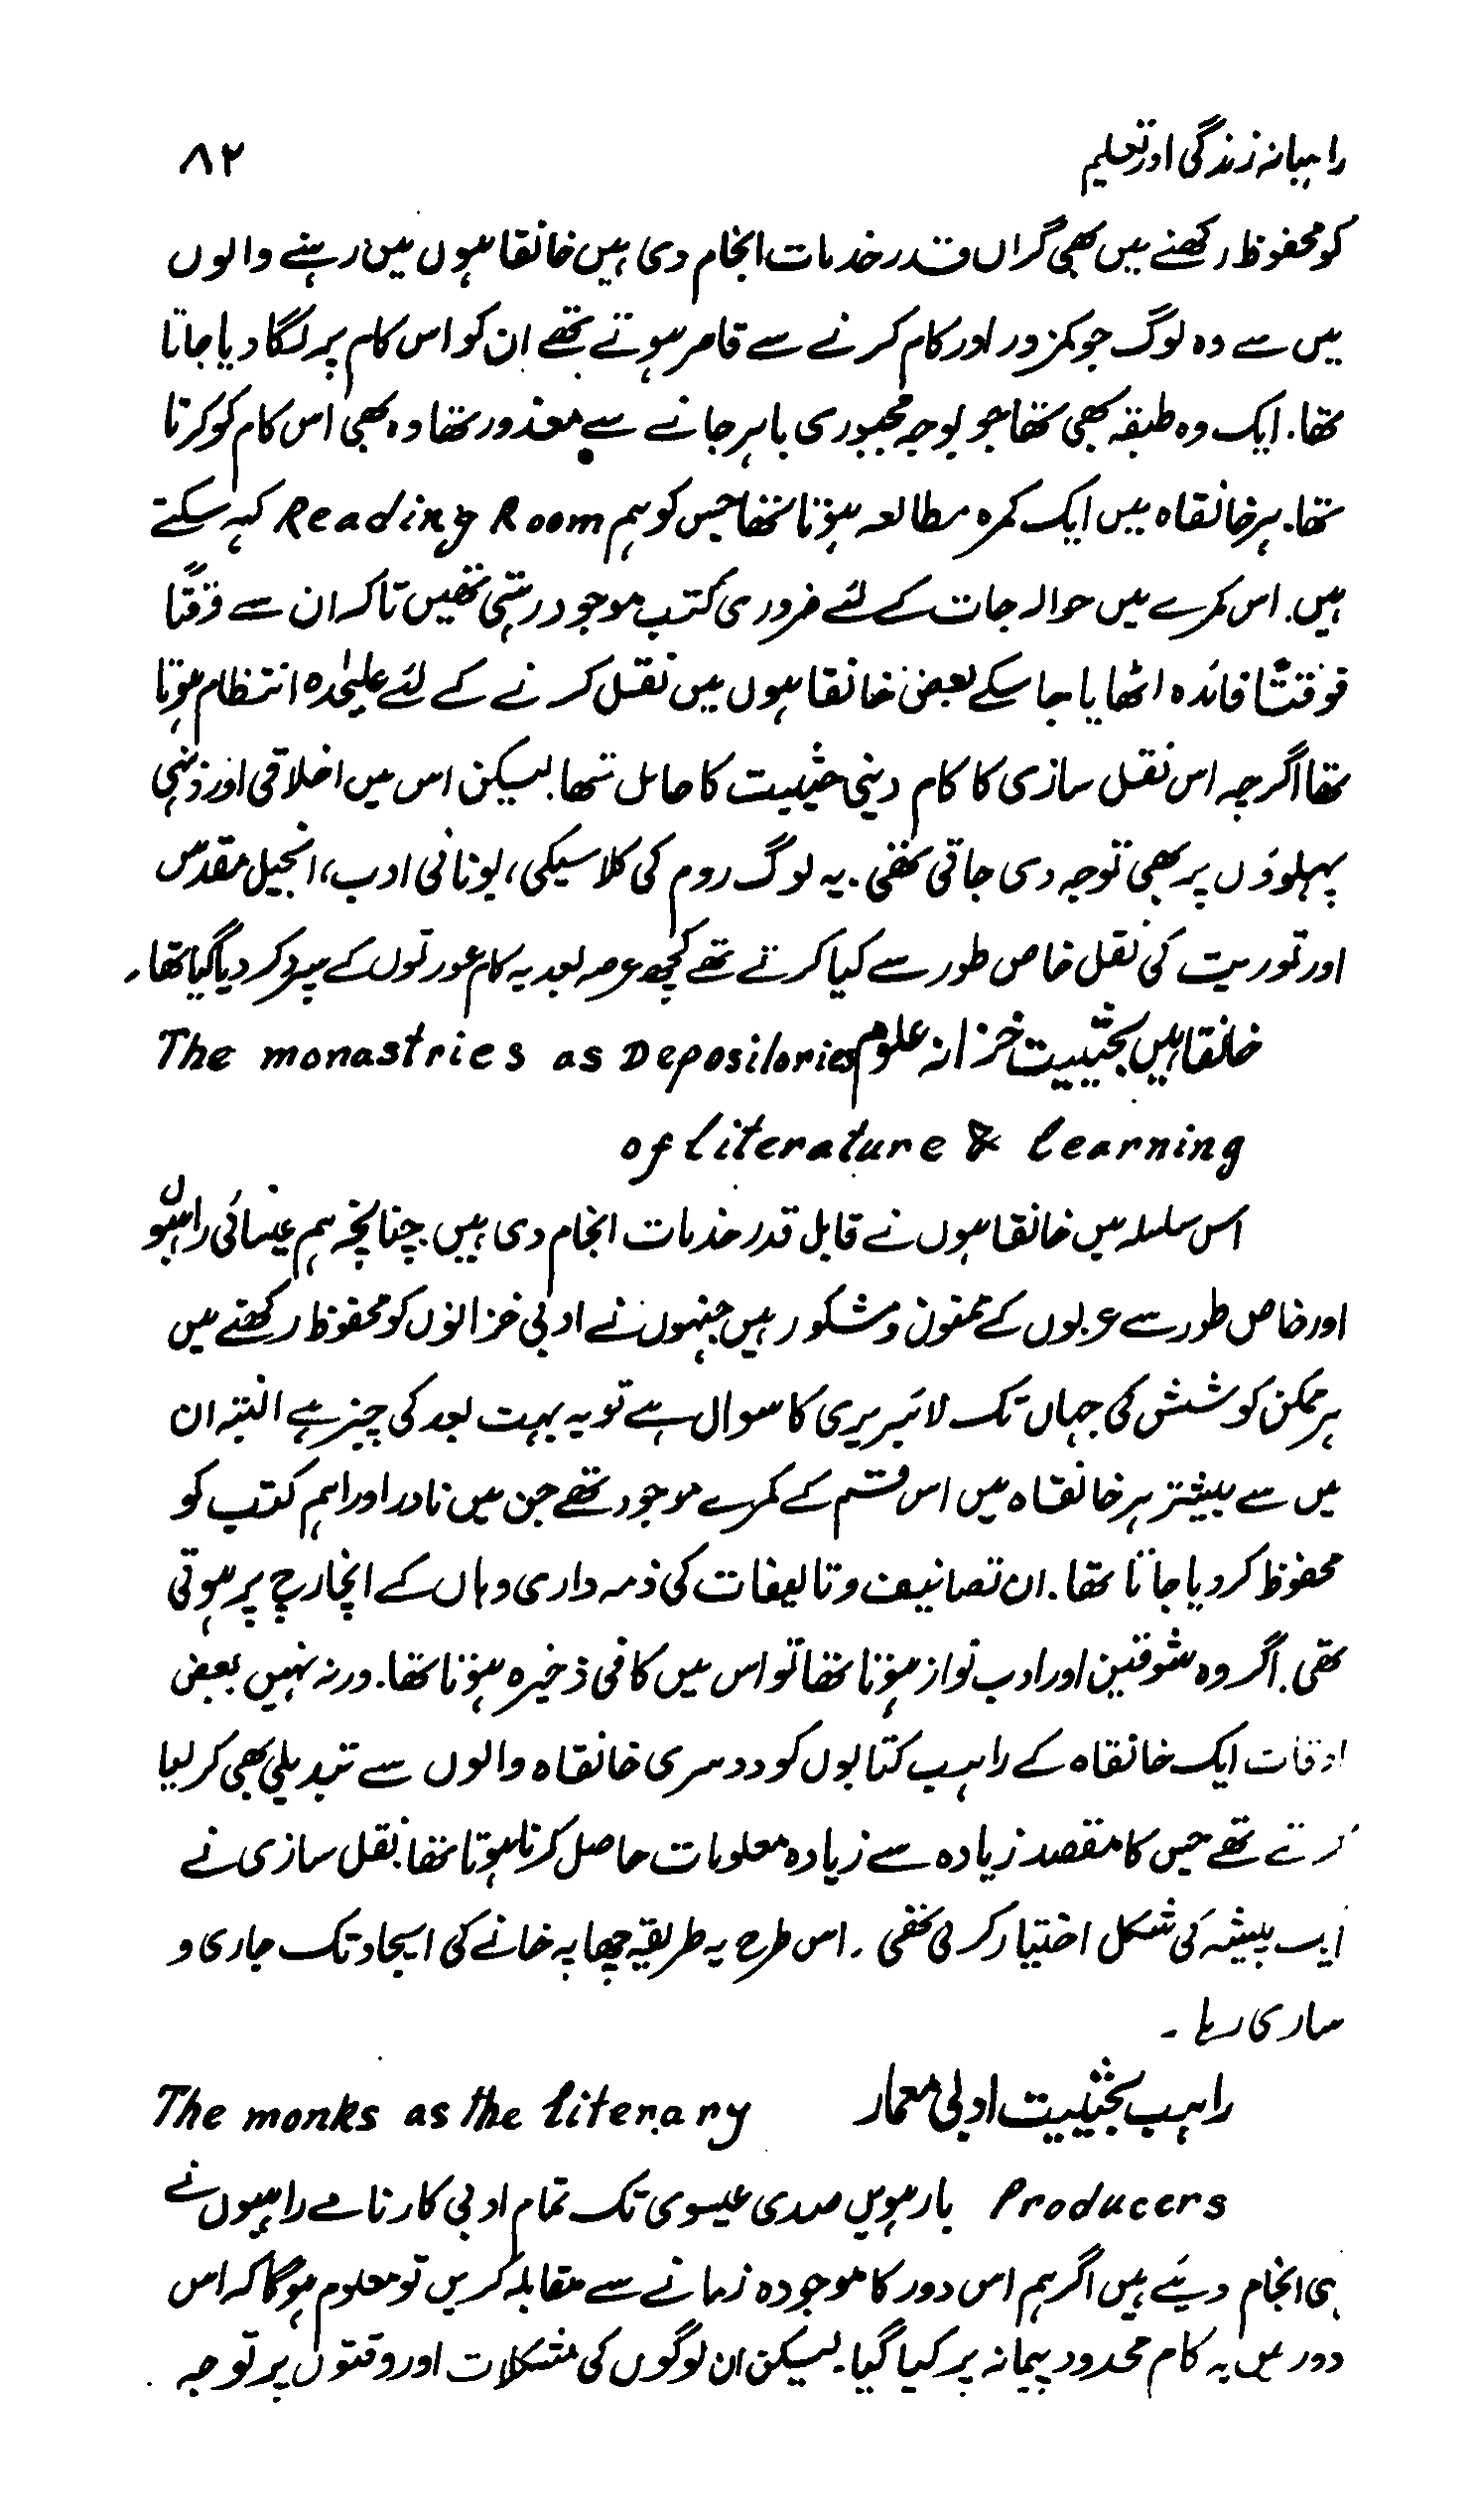 راہبانہ زندگی اور تعلیم ۸۲
کو محفوظ رکھنے میں بھی گراں قدر خدمات انجام دی ہیں خانقاہوں میں رہنے والوں
میں سے وہ لوگ جو کمزور اور کام کرنے سے قاصر ہوتے تھے ان کو اس کام پر لگا دیا جاتا
تھا. ایک وہ طبقہ بھی تھا جو بوجہ مجبوری باہر جانے سے معذور تھا وہ بھی اس کام کو کرتا
تھا. ہر خانقاہ میں ایک کمرہ مطالعہ ہوتا تھا جس کو ہم Reading Room کہہ سکتے
ہیں. اس کمرے میں حوالہ جات کے لئے ضروری کتب موجود رہتی تھیں تاکہ ان سے وقتاً
فوقتاً فائدہ اٹھایا جا سکے بعض خانقاہوں میں نقل کرنے کے لئے علیٰحدہ انتظام ہوتا
تھا اگرچہ اس نقل سازی کا کام دینی حیثیت کا حامل تھا. لیکن اس میں اخلاقی اور ذہنی
پہلوؤں پر بھی توجہ دی جاتی تھی. یہ لوگ روم کی کلاسیکی، یونانی ادب، انجیل مقدس
اور توریت کی نقل خاص طور سے کیا کرتے تھے کچھ عرصہ بعد یہ کام عورتوں کے سپرد کر دیا گیا تھا۔
خانقاہیں بحیثیت خزانہ علوم The monastries as Depositories
of Literature & learning
اس سلسلہ میں خانقاہوں نے قابل قدر خدمات انجام دی ہیں. چنانچہ ہم عیسائی راہبوں
اور خاص طور سے عربوں کے ممنون و مشکور ہیں جنہوں نے ادبی خزانوں کو محفوظ رکھنے میں
ہر ممکن کوشش کی جہاں تک لائبریری کا سوال ہے تو یہ بہت بعد کی چیز ہے البتہ ان
میں سے بیشتر ہر خانقاہ میں اس قسم کے کمرے موجود تھے جن میں نادر اور اہم کتب کو
محفوظ کر دیا جاتا تھا. ان تصانیف و تالیفات کی ذمہ داری وہاں کے انچارج پر ہوتی
تھی. اگر وہ شوقین اور ادب نواز ہوتا تھا تو اس میں کافی ذخیرہ ہوتا تھا. ورنہ نہیں بعض
اوقات ایک خانقاہ کے راہب کتابوں کو دوسری خانقاہ والوں سے تبدیلی بھی کر لیا
کرتے تھے جس کا مقصد زیادہ سے زیادہ معلومات حاصل کرنا ہوتا تھا. نقل سازی نے
ایک پیشہ کی شکل اختیار کر لی تھی. اس طرح یہ طریقہ چھاپہ خانے کی ایجاد تک جاری و
ساری رہا۔
راہب بحیثیت ادبی معمار The monks as the literary
Producers بارہویں صدی عیسوی تک تمام ادبی کارنامے راہبوں نے
ہی انجام دیئے ہیں اگر ہم اس دور کا موجودہ زمانے سے مقابلہ کریں تو معلوم ہوگا کہ اس
دور میں یہ کام محدود پیمانہ پر کیا گیا. لیکن ان لوگوں کی مشکلات اور وقتوں پر توجہ